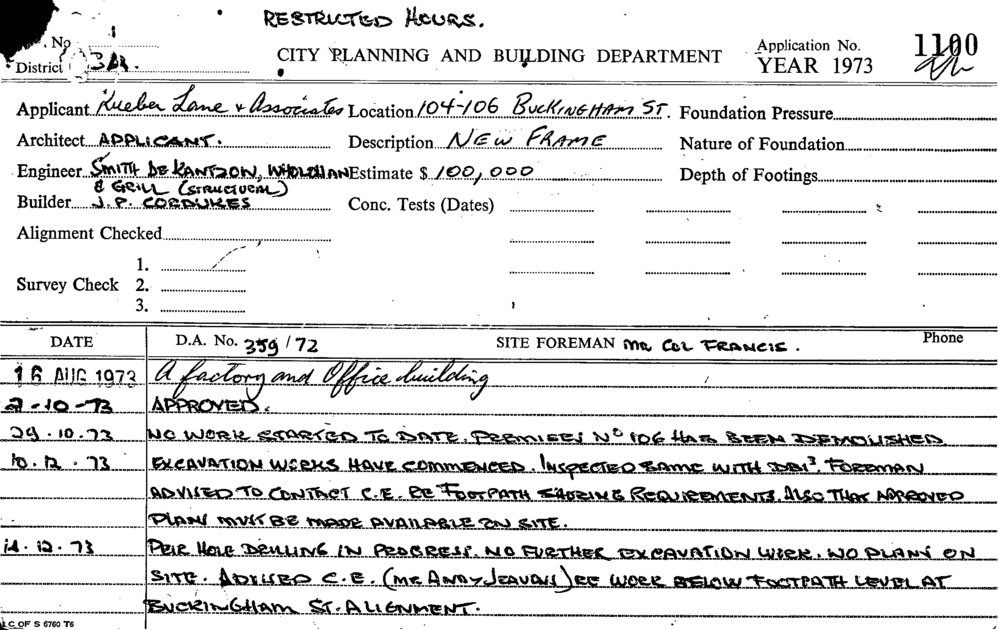 RESTRICTED HOURS.
No
CITY PLANNING AND BUILDING DEPARTMENT
Application No. 1100
District 3A.
YEAR 1973
Applicant Kueber Lane & Associates Location 104-106 BUCKINGHAM ST. Foundation Pressure
Architect APPLICANT. Description NEW FRAME Nature of Foundation
Engineer SMITH DE KANTZON, WHOLOHAN Estimate $ 100,000 Depth of Footings
& GRILL (STRUCTURAL)
Builder J. P. CORDUKES Conc. Tests (Dates)
Alignment Checked
1.
Survey Check 2.
3.
DATE D.A. No. 359/72 SITE FOREMAN MR COL FRANCIS. Phone
16 AUG 1973 A factory and Office building
2-10-73 APPROVED.
29.10.73 NO WORK STARTED TO DATE. PREMISES No 106 HAS BEEN DEMOLISHED
10.12.73 EXCAVATION WORKS HAVE COMMENCED. INSPECTED SAME WITH DBI3. FOREMAN
ADVISED TO CONTACT C.E. RE FOOTPATH SHORING REQUIREMENTS. ALSO THAT APPROVED
PLANS MUST BE MADE AVAILABLE ON SITE.
14.12.73 PEIR HOLE DRILLING IN PROGRESS. NO FURTHER EXCAVATION WORK. NO PLANS ON
SITE. ADVISED C.E. (MR ANDY JEAVONS) RE WORK BELOW FOOTPATH LEVEL AT
BUCKINGHAM ST. ALIGNMENT.
C OF S 6760 T6